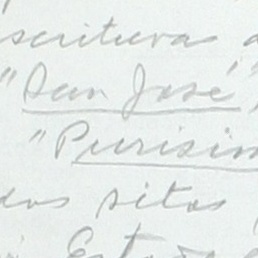 scrituras a
"San José",
"Purisim
dos sitos
Estado